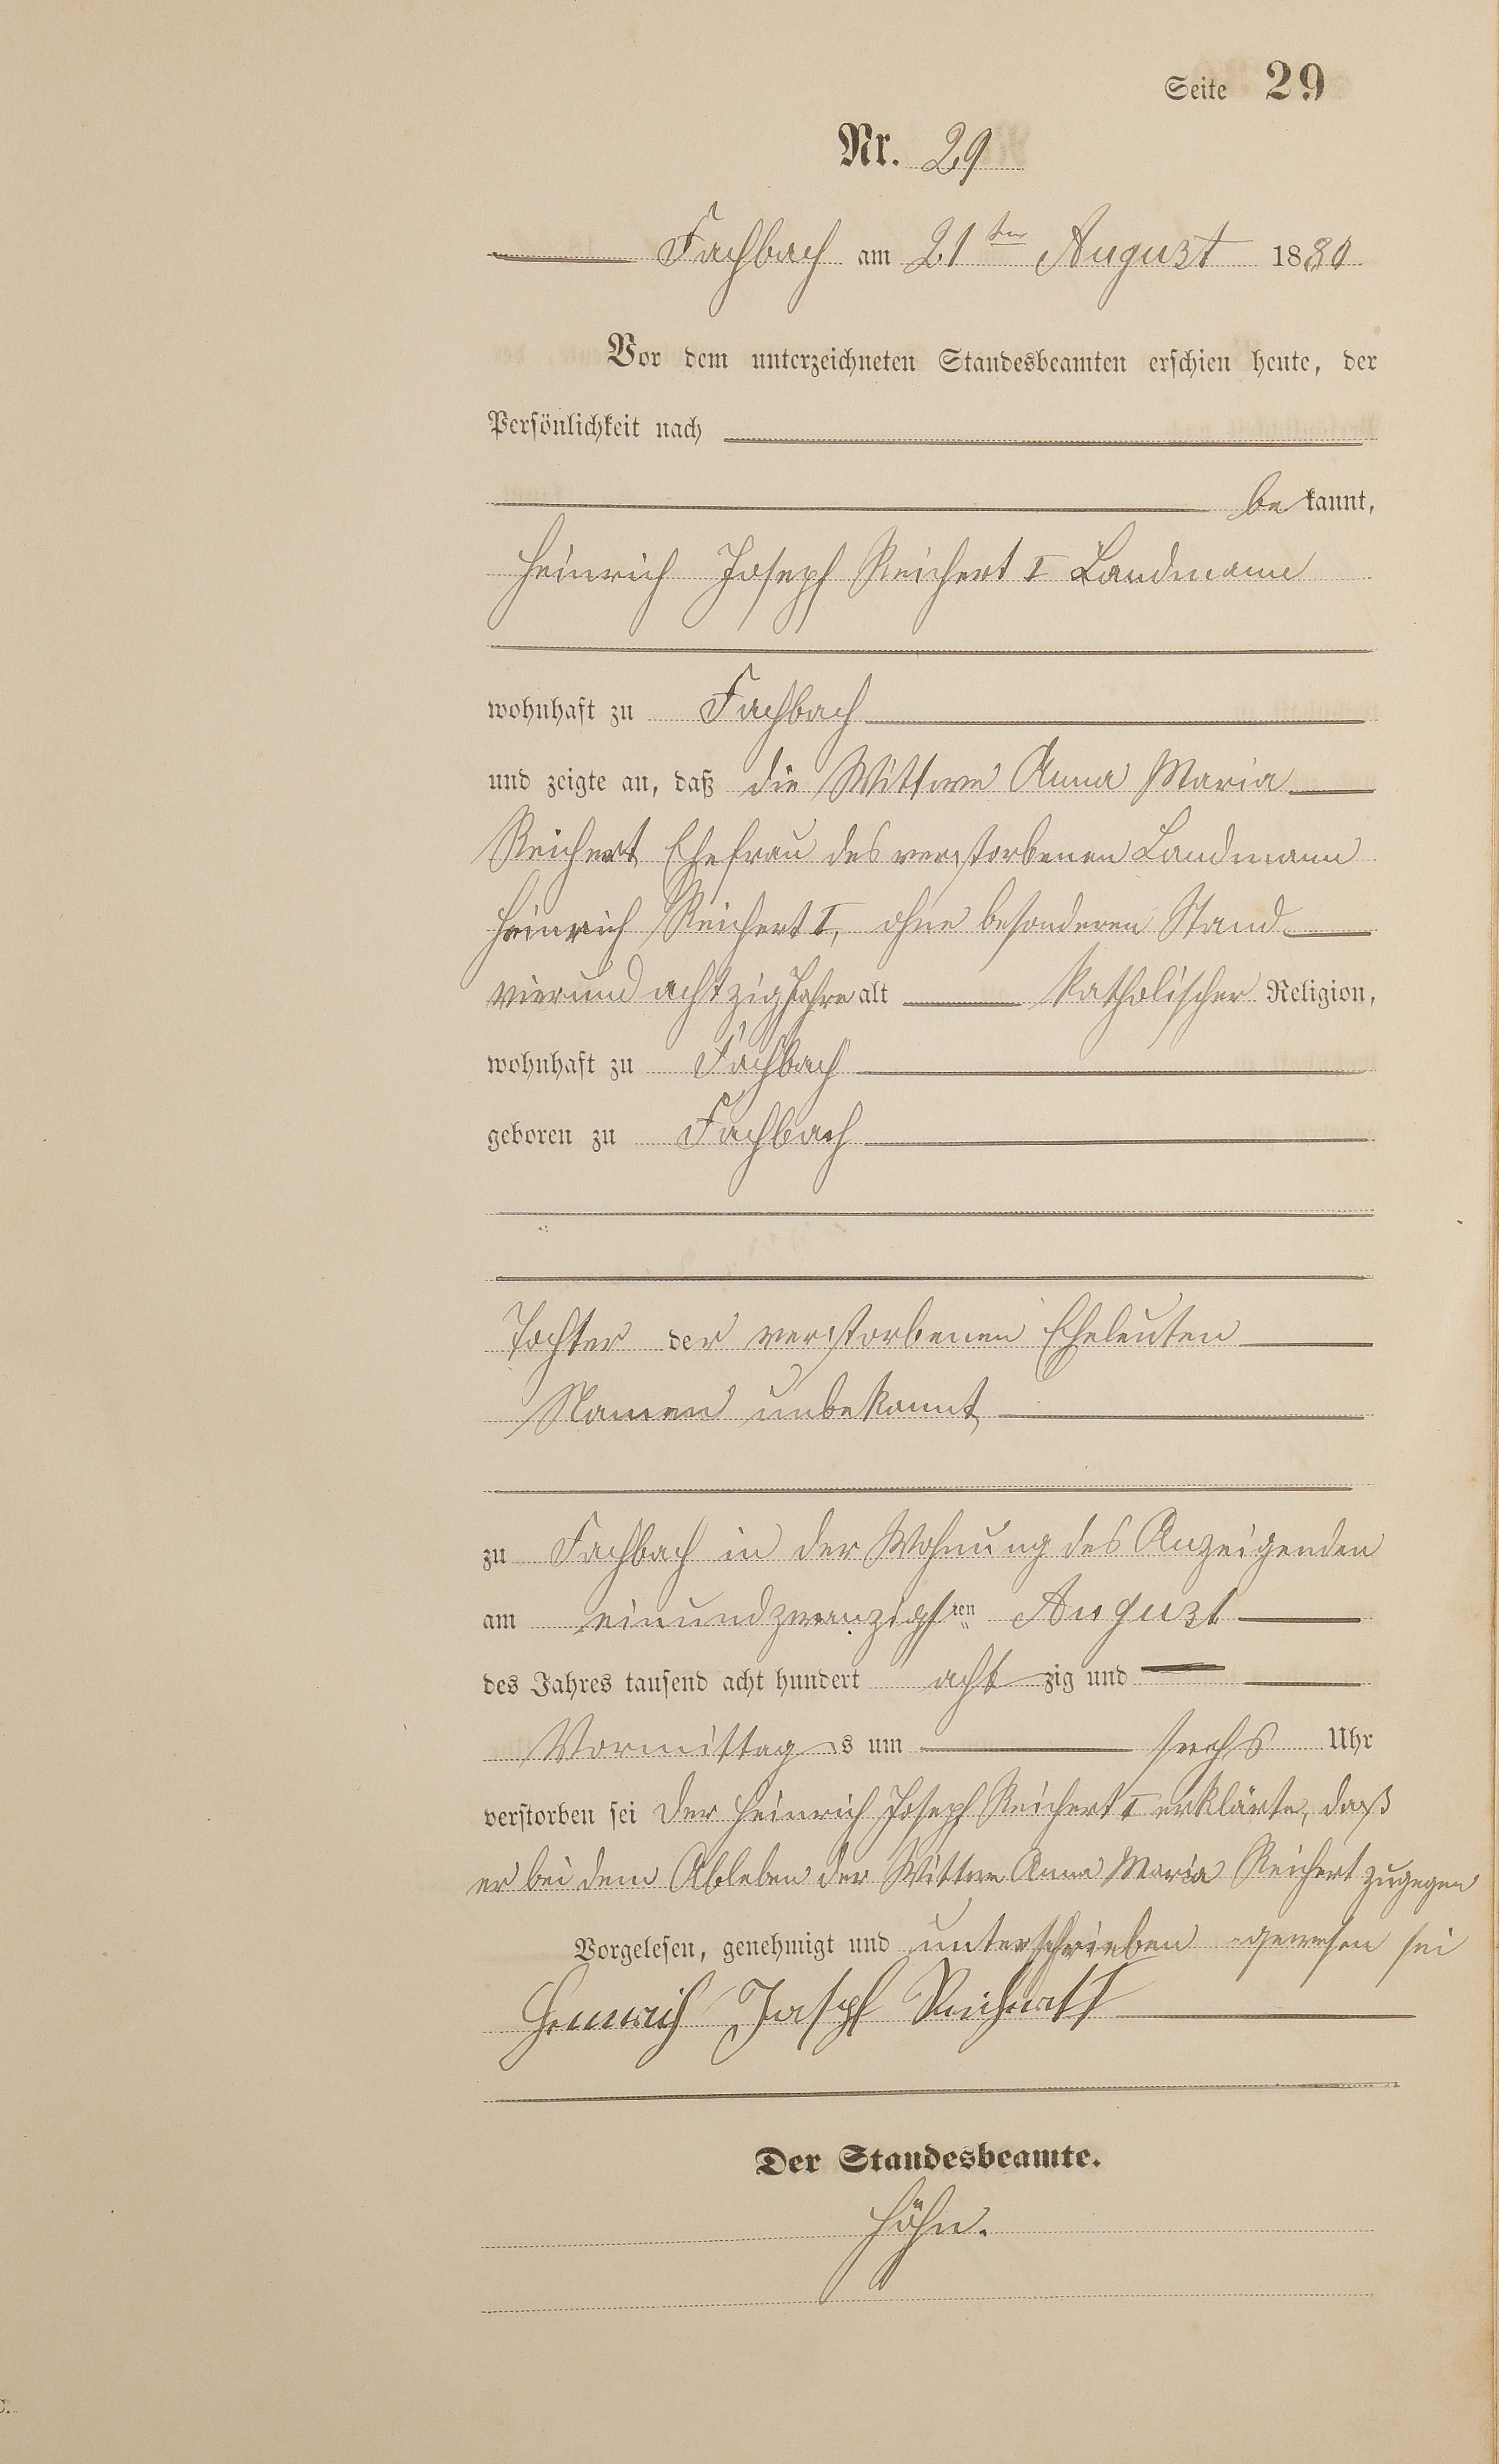 Seite 29
Nr. 29
Fachbach am 21ten August 1880
Vor dem unterzeichneten Standesbeamten erschien heute, der
Persönlichkeit nach
be kannt,
Heinrich Joseph Reichert I Landmann
wohnhaft zu Fachbach
und zeigte an, daß die Wittwe Anna Maria
Reichert Ehefrau des verstorbenen Landmann
Heinrich Reichert I, ohne besonderen Stand
vierundachtzig Jahre alt katholischer Religion,
wohnhaft zu Fachbach
geboren zu Fachbach
Tochter der verstorbenen Eheleuten
Namen unbekannt
zu Fachbach in der Wohnung des Anzeigenden
am einundzwanzigsten August
des Jahres tausend acht hundert acht zig und
Vormittag s um sechs Uhr
verstorben sei der Heinrich Joseph Reichert I erklärte, daß
er bei dem Ableben der Wittwe Anna Maria Reichert zugegen
Vorgelesen, genehmigt und unterschrieben gewesen sei
Heinrich Joseph Reichert I
Der Standesbeamte.
Höhn.